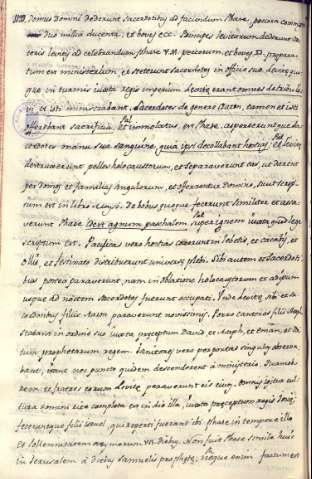 domus Domini dederunt Sacerdotibus ad faciendum Phase, pecora commixtim
duo millia ducenta, et boves ccc. Principes levitarum dederunt cæ
teris levitis ad celebrandum Phase V.M. pecorum, et boves D. præpara
tum est ministerium et steterunt Sacerdotes in officio suo, Levitæ quo
que in turmis iuxta regis imperium
et isti ministrabant. Sacerdotes de genere Aaron, et isti
offerebant sacrificia, et immolatum est Phase, asperseruntque Sa
cerdotes manu sua sanguinem, quia ipsi decollabant hostias, et Levitæ
detraxerunt pelles holocaustorum, et separaverunt eas, ut darent
per domos et familias singulorum, et offerrentur Domino, sicut scrip
tum est in libro Moysi. De bobus quoque fecerunt similiter et assa
verunt Phase idest agnum paschalem super ignem iuxta quod lege
scriptum est. Pacificas vero hostias coxerunt in lebetis, et cacabis, et
ollis, et festinato distribuerunt universæ plebi. Sibi autem et Sacerdoti
bus postea paraverunt, nam in oblatione holocaustorum et adipum
usque ad noctem Sacerdotes fuerunt occupati. Unde Levitæ sibi et sa
cerdotibus filiis Aaron paraverunt novissimis. Porro cantores filii Asaph
stabant in ordine suo iuxta præceptum David, et Asaph, et Eman,
prophetarum regis. Ianitores vero per portas singulas observa
bant, ita ut nec puncto quidem discederent a ministerio. Quamob
rem et fratres eorum Levitæ paraverunt eis cibos. Omnis igitur cul
tura Domini rite completa est in die illa iuxta præceptum regis Iosiæ,
feceruntque filii israel qui reperti fuerant ibi Phase in tempore illo
et sollemnitatem azymorum VII diebus. Non fuit Phase simile huic
in Ierusalem a diebus Samuelis prophetæ,